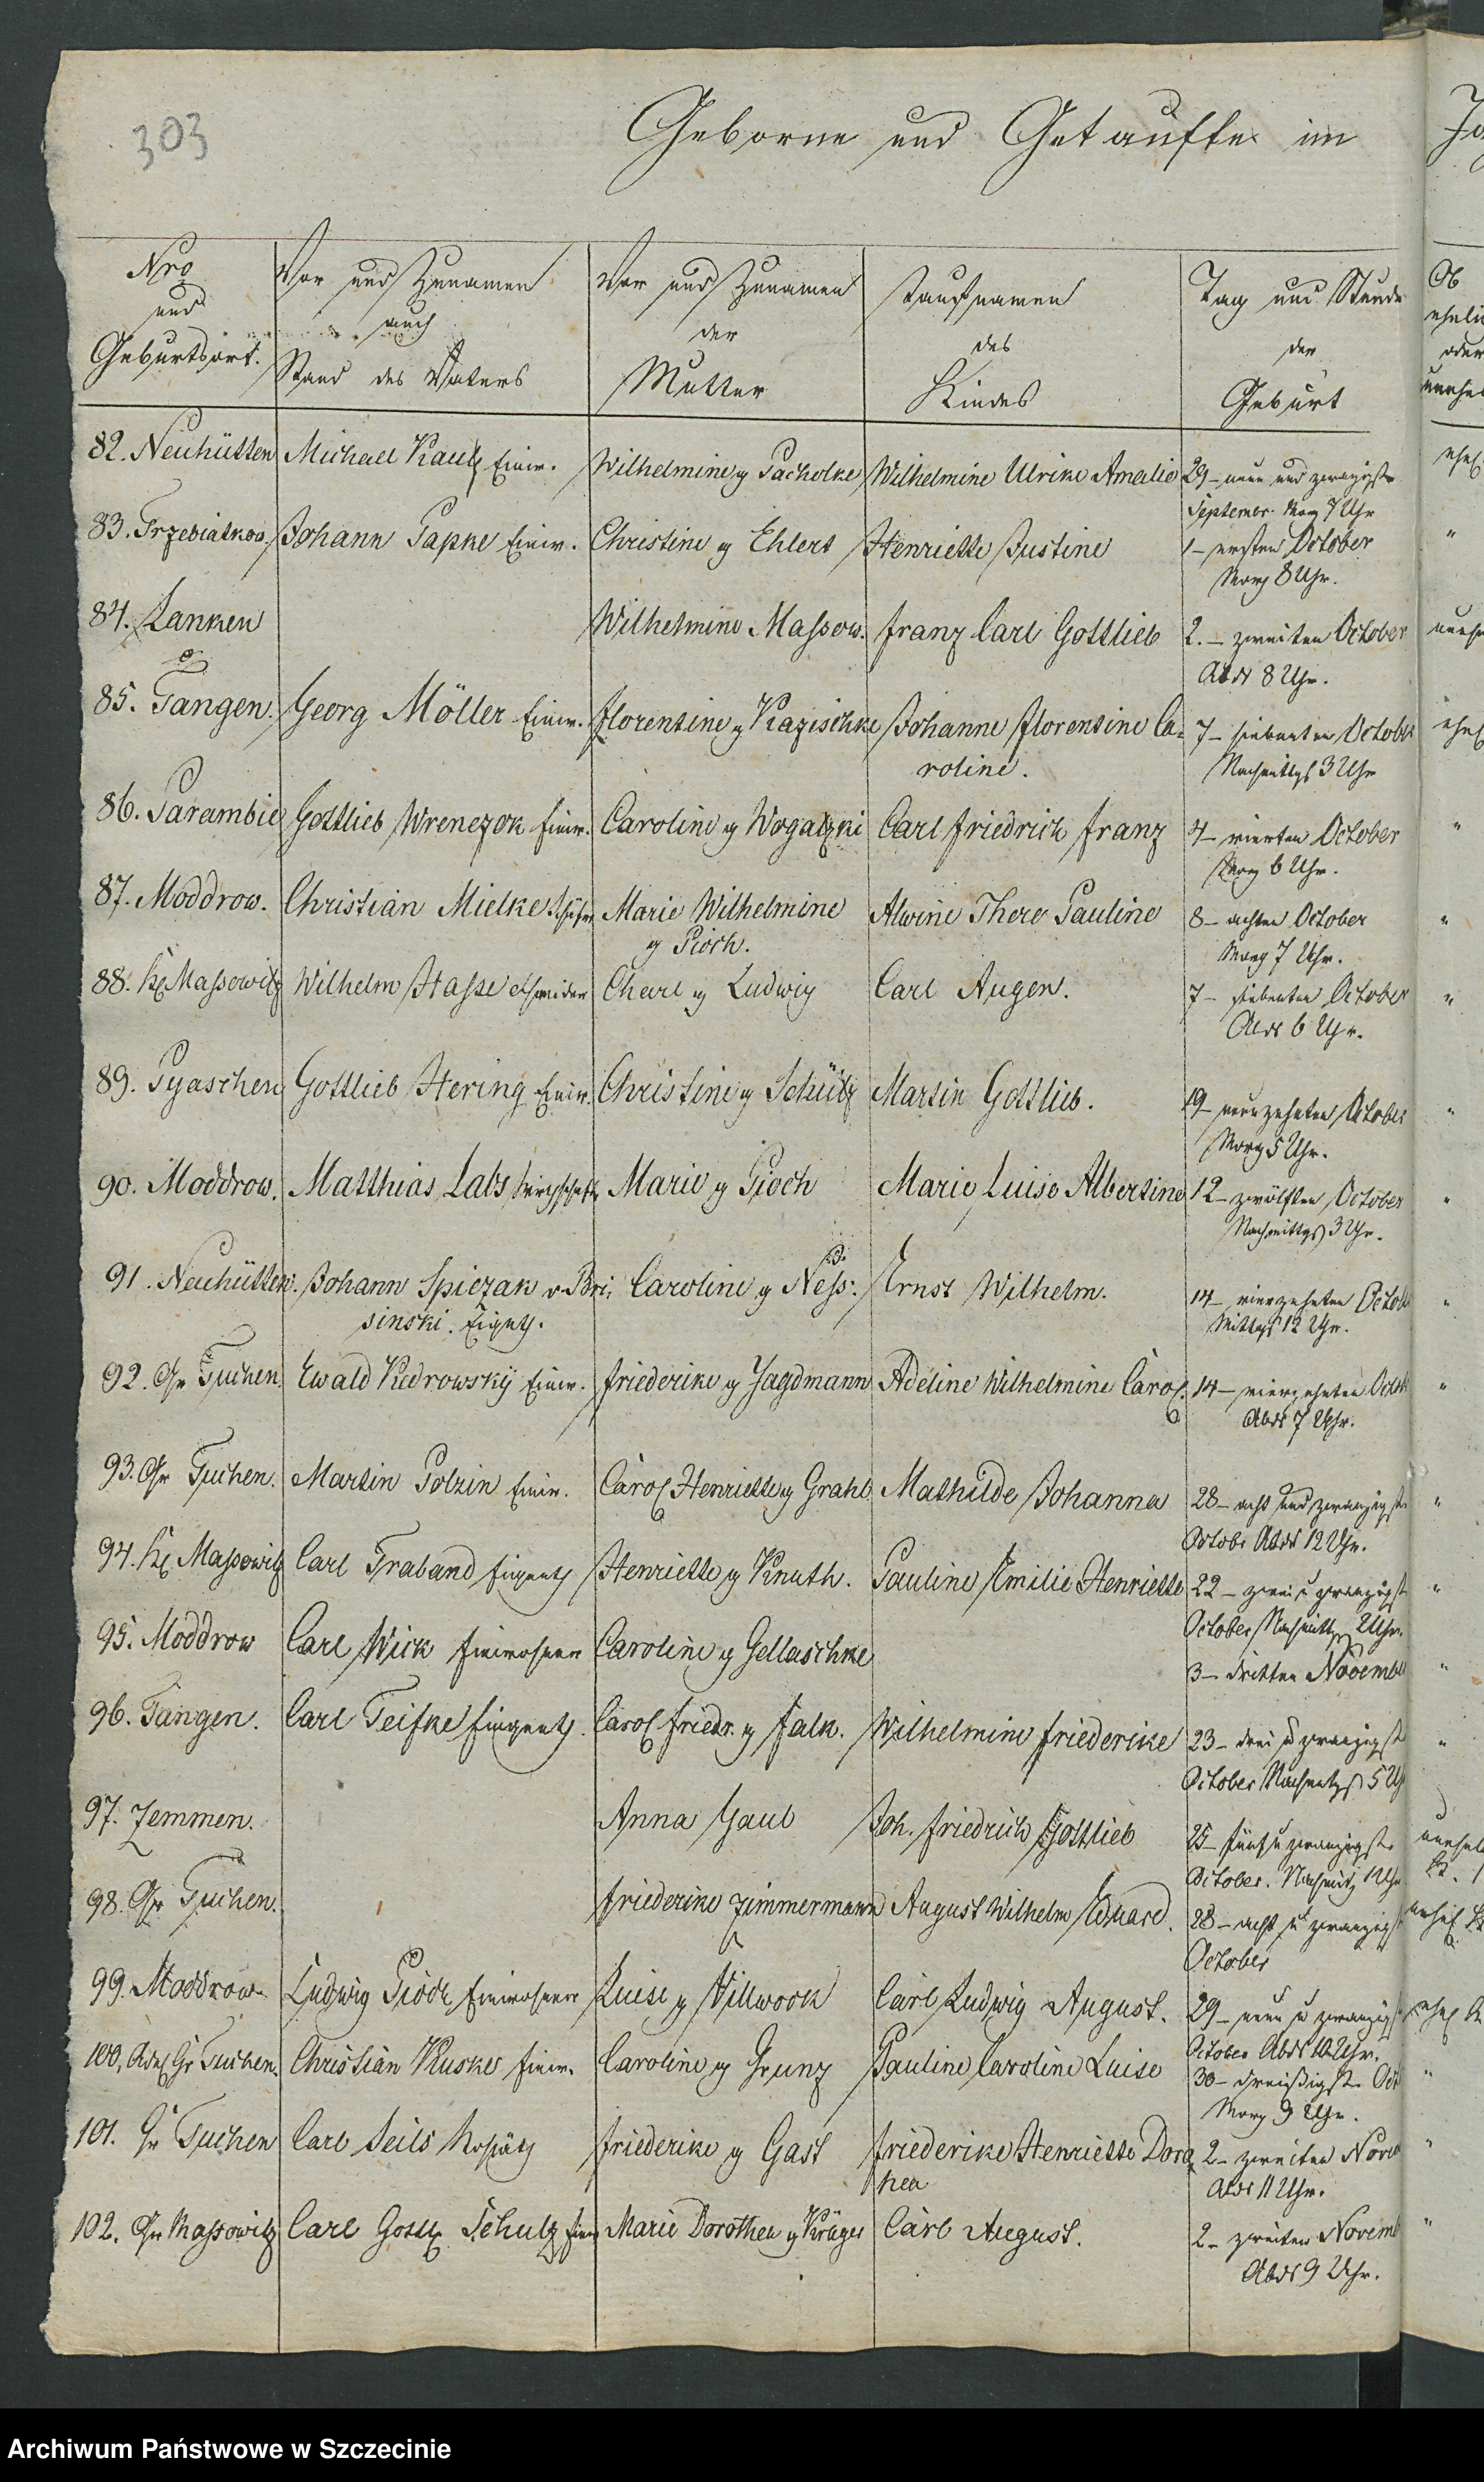 303
Geborne und Getaufte im
Nro und Geburtsort.
Vor und Zunamen auch Stand des Vaters
Vor und Zunamen der Mutter
Taufnamen des Kindes
Tag und Stunde der Geburt
Ob ehelich oder unehel
82. Neuhütten Michael Kautz Einw. Wilhelmine g Pacholke Wilhelmine Ulrike Amalie 29 – neun und zwanzigste
September Morg 7 Uhr
83. Trzebiatkow. Johann Papke Einw. Christine g Ehlert Henriette Justine 1 – ersten October "
Morg 8 Uhr.
84. Lanken Wilhelmine Massow. Franz Carl Gottlieb 2. – zweiten October
Abds 8 Uhr.
85. Tangen. Georg Möller Einw. Florentine g Kazischke Johanne Florentine Ca=
roline.
7 – siebenten October
Nachmittgs 3 Uhr
86. Parambie Gottlieb Wrenczok Einw. Caroline g Wogatzki Carl Friedrich Franz 4 – vierten October "
Morg 6 Uhr.
87. Moddrow. Christian Mielke Schäfer Marie Wilhelmine
g Pioch.
Alwine There Pauline 8 – achten October "
Morg 7 Uhr.
88. Kl Massowitz Wilhelm Hasse Schneider Charl g Ludwig Carl Augen. 7 – siebenten October "
Abds 6 Uhr.
89. Pyaschen Gottlieb Hering Einw. Christine g Schütz Martin Gottlieb. 19 – neunzehnten October "
Morg 5 Uhr.
90. Moddrow. Matthias Labs Marie g Pioch Marie Luise Albertine 12 – zwölften October "
Nachmittgs 3 Uhr.
91. Neuhütten. Johann Spiczak v. Bri=
sinski. Eigenth.
Caroline g Ness. Ernst Wilhelm. 14 – vierzehnten Octob "
Mittgs 12 Uhr.
92. Gr Tuchen. Ewald Kedrowsky Einw. Friederike g Jagdmann Adeline Wilhelmine Carol. 14 – vierzehnten Octob "
Abds 7 Uhr.
93. Gr Tuchen. Martin Polzin Einw. Carol Henriette g Grahl Mathilde Johanna 28 – acht und zwanzigste "
Octobr Abds 12 Uhr.
94. Kl Massowitz Carl Traband Eigenth. Henriette g Knuth. Pauline Emilie Henriette 22 – zwei u zwanzigst "
October Nachmittg 2 Uhr.
95. Moddrow Carl Wick Einwohner Caroline g Gellaschke 3 – dritten November "
96. Tangen. Carl Teifke Eigenth. Carol Friedr. g Falk. Wilhelmine Friederike 23 – drei u zwanzigst "
October Nachmittgs 5 Uh
97. Zemmen. Anna Gaul Joh. Friedrich Gottlieb 25 – fünf u zwanzigste
October. Nachmittg Uhr
98. Gr Tuchen. Friederike Zimmermann August Wilhelm Eduard. 28 – acht u zwanzigst
October
99. Moddrow Ludwig Pioch Einwohner Luise g Villwock Carl Ludwig August. 29 – neun u zwanzigst
October Abds 10 Uhr.
100. Adel Gr Tuchen. Christian Kuske Einw. Caroline g Grunz Pauline Caroline Luise 30 – dreißigste Oct "
Morg 9 Uhr.
101. Gr Tuchen Carl Seils Kossäth Friederike g Gast Friederike Henriette Doro
thea
2 – zweiten Novem "
Abds 11 Uhr.
102. Gr Massowitz Carl Gottl. Schulz Einw Marie Dorothea g Krüger Carl August. 2 – zweiten Novemb "
Abds 9 Uhr.
Archiwum Państwowe w Szczecinie